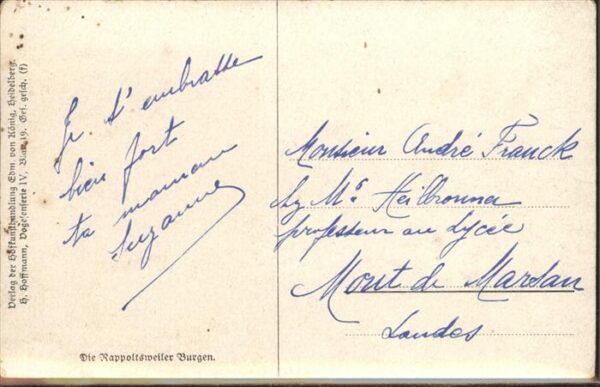 Verlag der Hofkunsthandlung Edm. von König, Heidelberg.
H. Hoffmann, Vogesenserie IV, Bl. 19. Ges. gesch. (f)
Je t'embrasse
bien fort
ta maman
Suzanne
Die Rappoltsweiler Burgen.
Monsieur André Franck
chz Mr Heilbronner
professeur au Lycée
Mont de Marsan
Landes